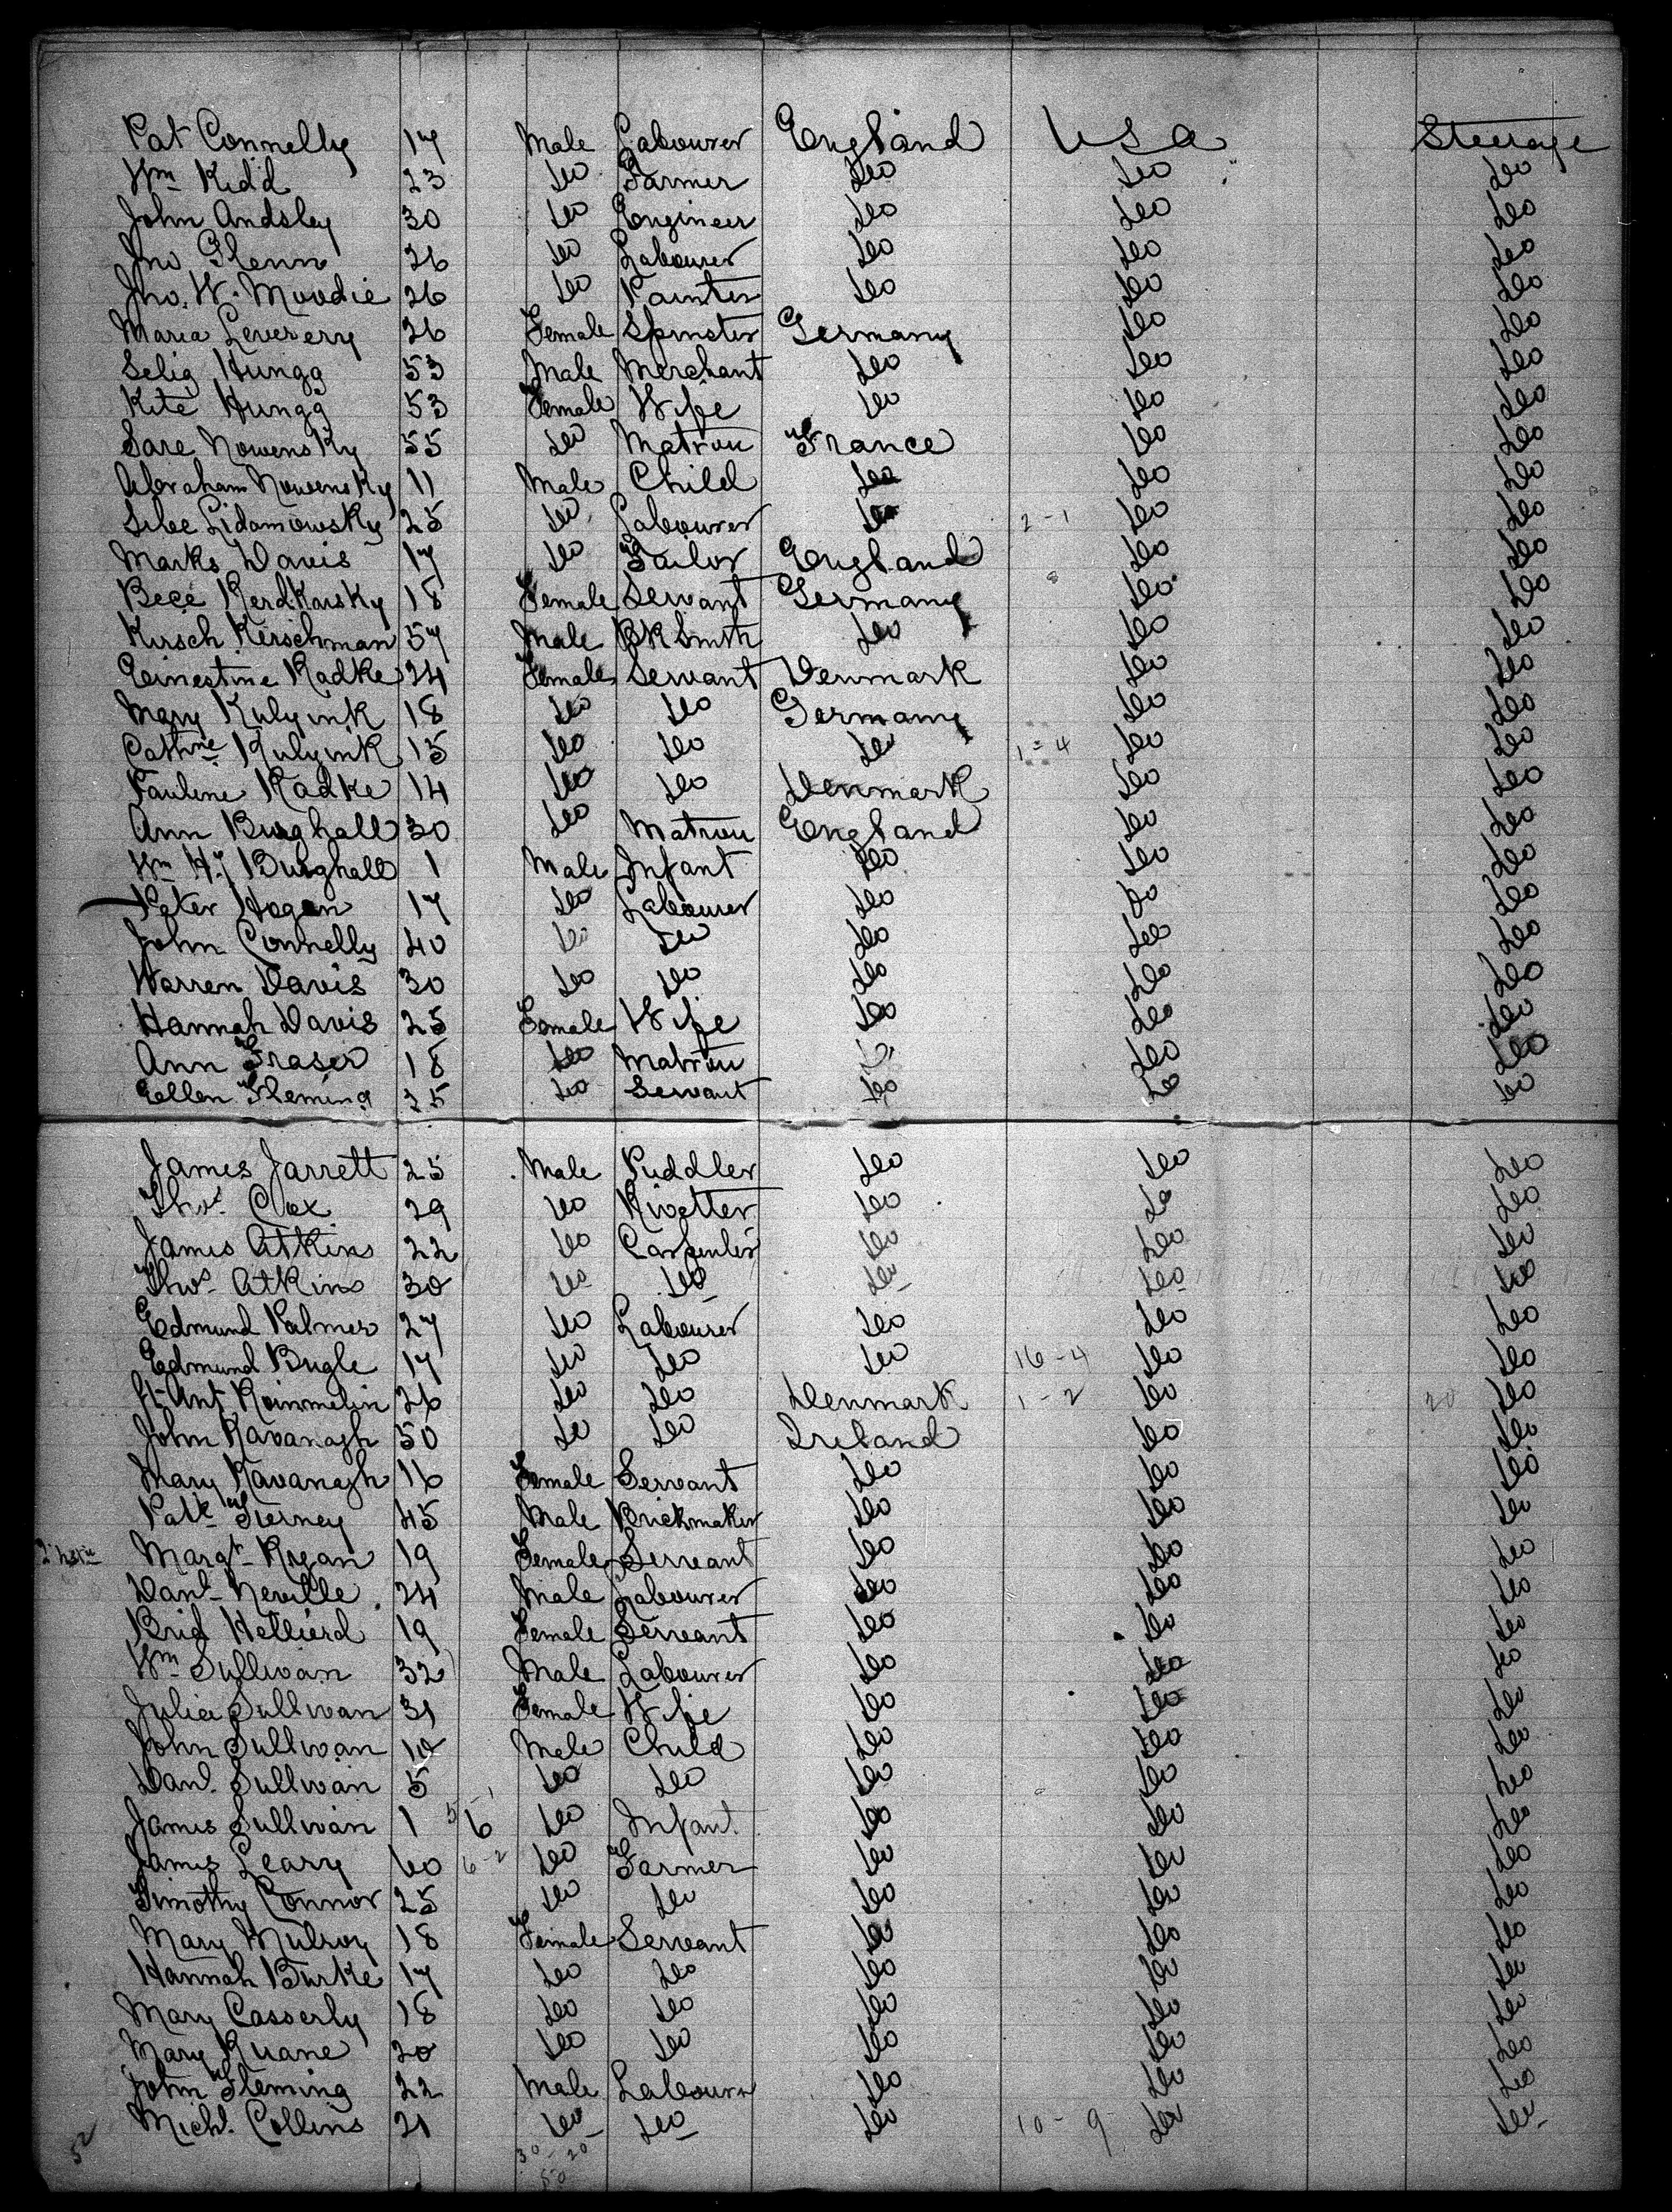 Pat Connelly 17 Male Labourer England U S A Steerage
Wm Kidd 23 Do Farmer Do Do Do
John Andsley 30 Do Engineer Do Do Do
Jno Glenn 26 Do Labourer Do Do Do
Jno. W. Moodie 26 Do Painter Do Do Do
Maria Leverery 26 Female Spinster Germany Do Do
Selig Hungg 53 Male Merchant Do Do Do
Kite Hungg 53 Female Wife Do Do Do
Sare Nowensky 55 Do Matron France Do Do
Abraham Nowensky 11 Male Child Do Do Do
Lidamowsky 25 Do Labourer Do 2-1 Do Do
Marks Davis 17 Do Tailor England Do Do
Bece 18 Female Servant Germany Do Do
Kirsch Kerschman 57 Male BKSmith Do Do Do
Ernestine Radke 24 Female Servant Denmark Do Do
Mary Kulyink 18 Do Do Germany Do Do
Cathne Kulyink 15 Do Do Do 1-4 Do Do
Pauline Radke 14 Do Do Denmark Do Do
Ann Burghall 30 Do Matron England Do Do
Wm Hy Burghall 1 Male Infant Do Do Do
Peter Hogan 17 Do Labourer Do Do Do
John Connelly 40 Do Do Do Do Do
Warren Davis 30 Do Do Do Do Do
Hannah Davis 25 Female Wife Do Do Do
Ann Fraser 18 Do Matron Do Do
Ellen Fleming 25 Do Servant Do Do Do
James Jarrett 25 Male Puddler Do Do Do
Thos. Cox 29 Do Rivetter Do Do Do
James Atkins 22 Do Carpenter Do Do Do
Thos Atkins 30 Do Do Do Do Do
Edmund Palmer 27 Do Labourer Do Do Do
Edmund Bugle 17 Do Do Do 16-4 Do Do
Ant Rimmelin 26 Do Do Denmark 1-2 Do 20 Do
John Kavanagh 50 Do Do Ireland Do Do
Mary Kavanagh 16 Female Servant Do Do Do
Patk Tierney 45 Male Brickmaker Do Do Do
Margt Ryan 19 Female Servant Do Do Do
Danl Neville 24 Male Labourer Do Do Do
Brid Hellierd 19 Female Servant Do Do Do
Wm Sullivan 32 Male Labourer Do Do Do
Julia Sullivan 31 Female Wife Do Do Do
John Sullivan 10 Male Child Do Do Do
Danl. Sullivan 5 Do Do Do Do Do
James Sullivan 1 6 Do Infant Do Do Do
James Leary 60 6-2 Do Farmer Do Do Do
Timothy Connor 25 Do Do Do Do Do
Mary Mulroy 18 Female Servant Do Do Do
Hannah Burke 17 Do Do Do Do Do
Mary Casserly 18 Do Do Do Do Do
Mary Ruane 20 Do Do Do Do Do
John Fleming 22 Male Labourer Do Do Do
Michl. Collins 21 Do Do Do 10-9 Do Do
52 30-20
50